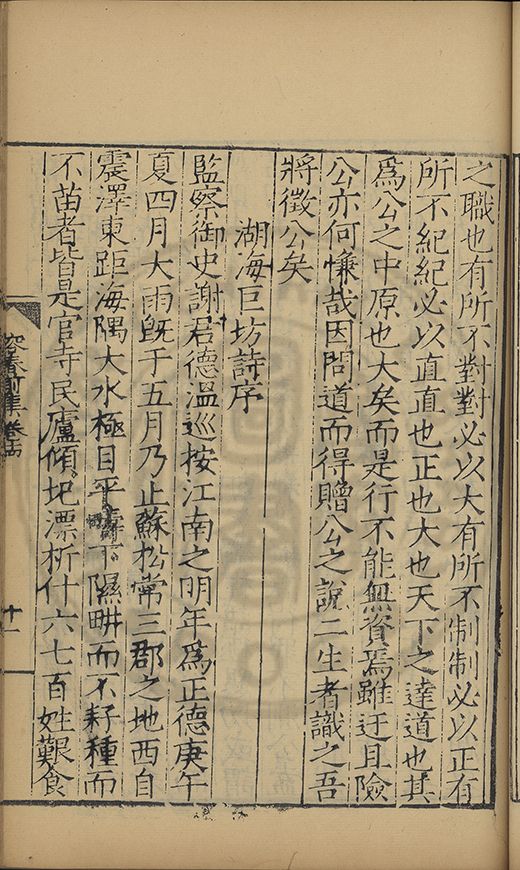 之職也有所不對對必以大有所不制制必以正有
所不紀紀必以直直也正也大也天下之達道也其
爲公之中原也大矣而是行不能無資焉雖迂且險
公亦何慊哉因問道而得贈公之說二生者識之吾
將徵公矣
湖海巨坊詩序
監察御史謝君德溫巡按江南之明年爲正德庚午
夏四月大雨旣于五月乃止蘇松常三郡之地西自
震澤東距海隅大水極目平下隰畊而不耔種而
不苗者皆是官寺民廬傾圮漂析什六七百姓艱食
容春前集卷十四
十一